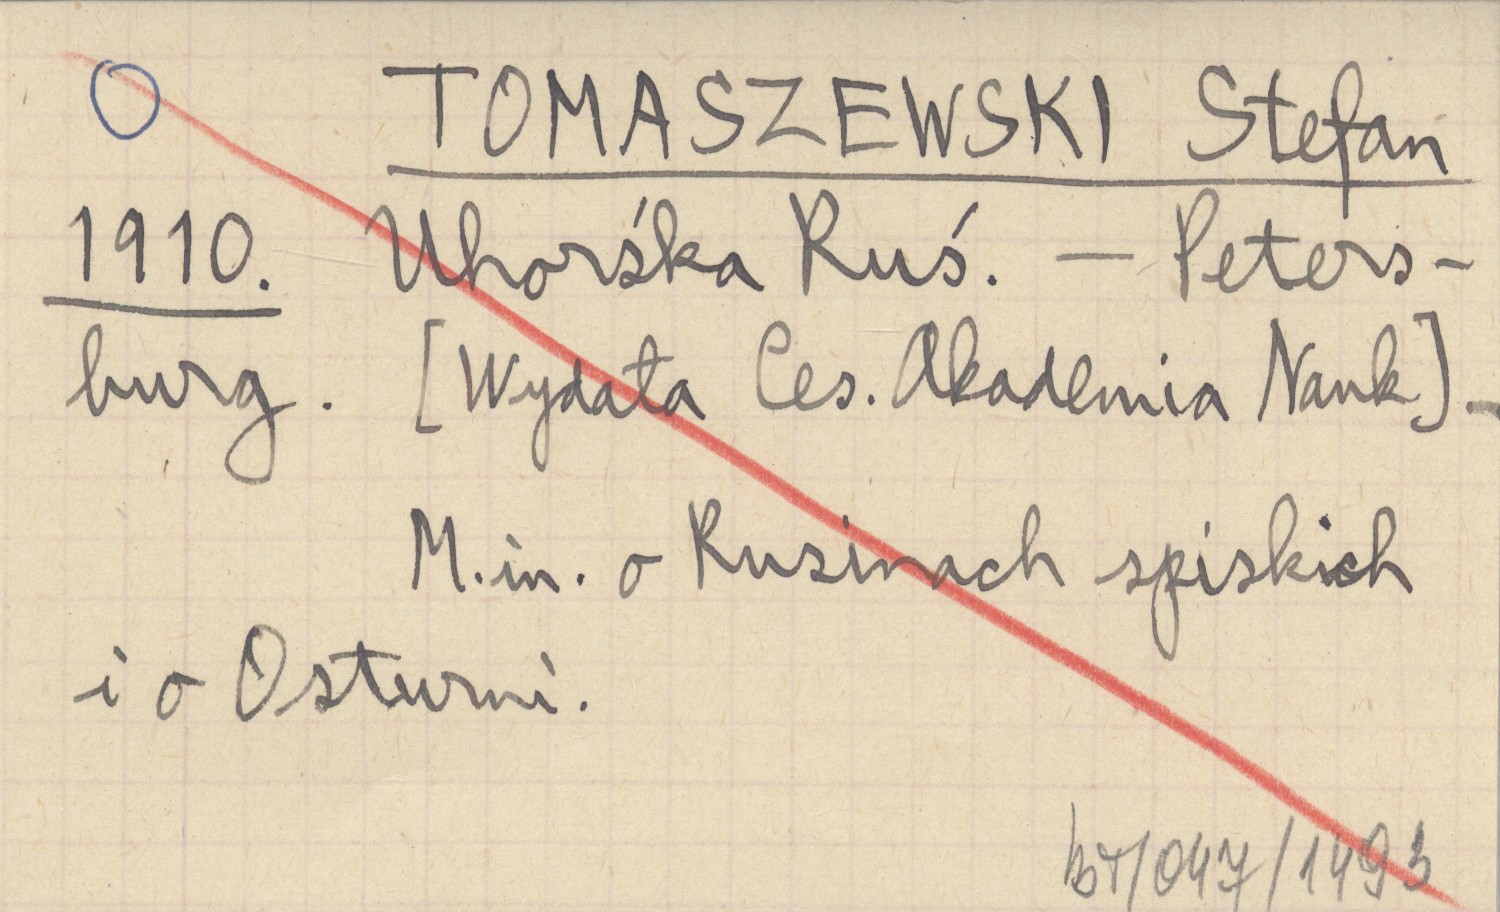 TOMASZEWSKI Stefan
1910. Uhorśka Ruś. — Peters-
burg. [Wydała Ces. Akademia Nauk]. -
M.in. o Rusinach spiskich
i o Osturni.
/047/1493